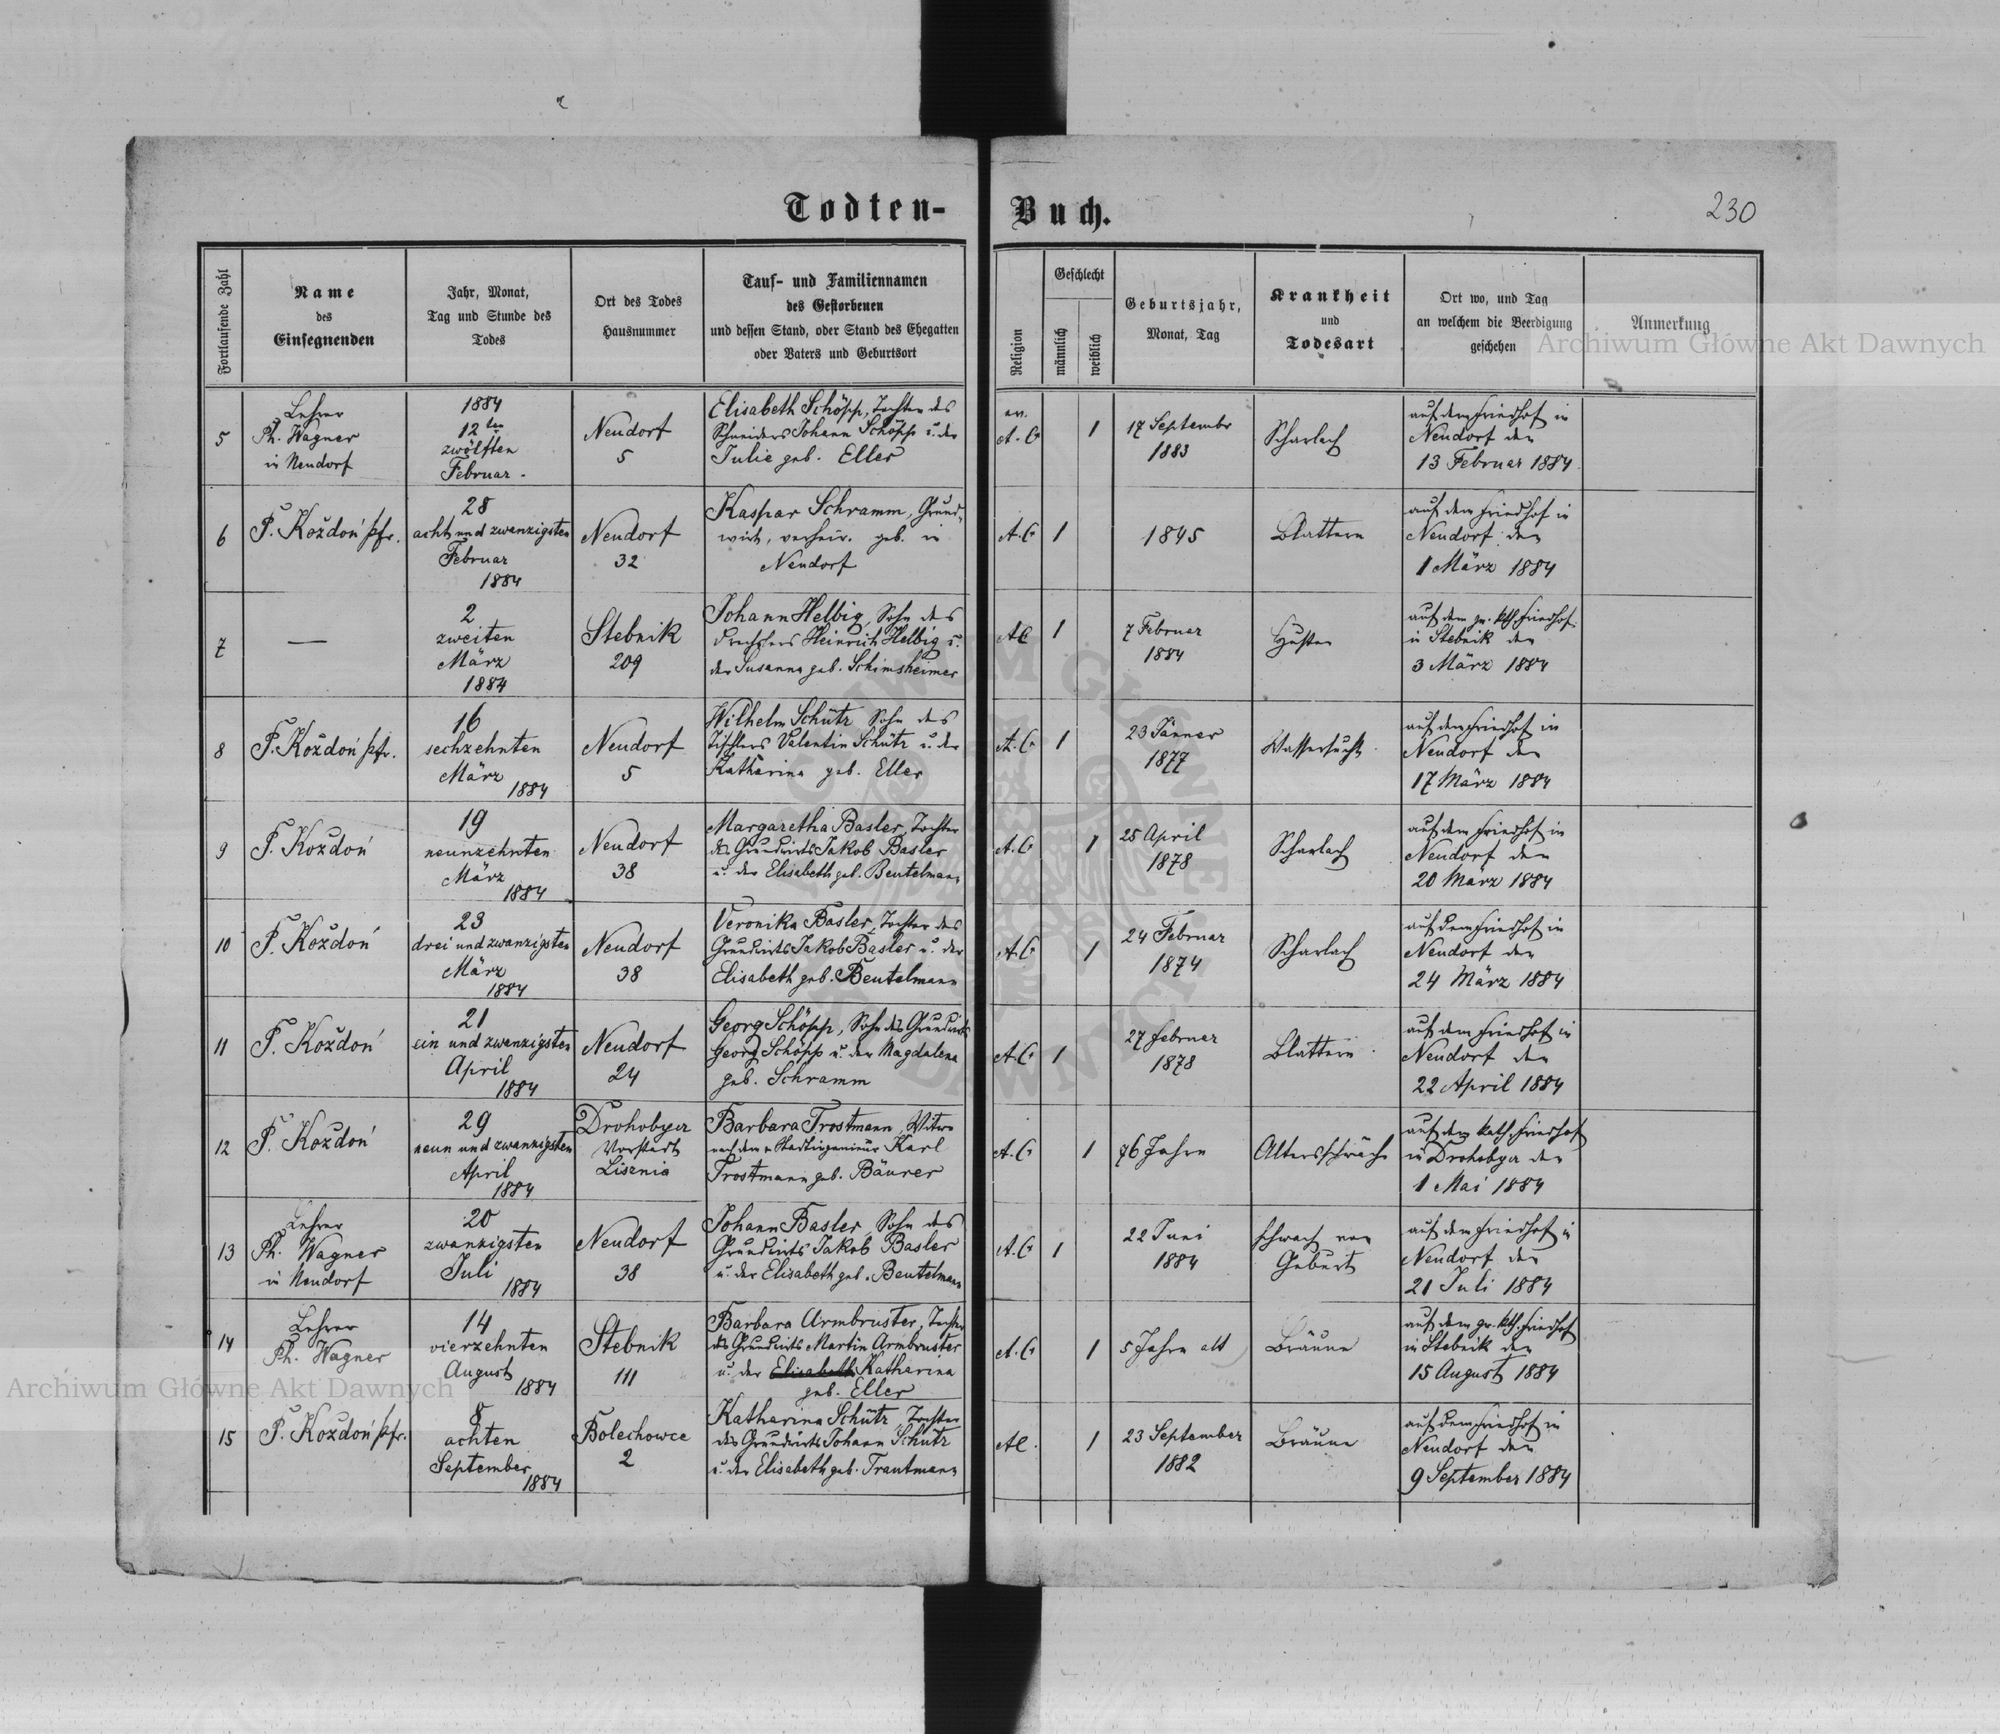 Todten-Buch.
230
Fortlaufende Zahl
Name
des
Einsegnenden
Jahr, Monat,
Tag und Stunde des
Todes
Ort des Todes
Hausnummer
Tauf- und Familiennamen
des Gestorbenen
und dessen Stand, oder Stand des Ehegatten
oder Vaters und Geburtsort
Religion
Geschlecht
männlich
weiblich
Geburtsjahr,
Monat, Tag
Krankheit
und
Todesart
Ort wo, und Tag
an welchem die Beerdigung
geschehen
Anmerkung
5
Lehrer
Ph. Wagner
in Neudorf
1884
12ten
zwölften
Februar.
Neudorf
5
Elisabeth Schöpp, Tochter des
Schneiders Johann Schöpp u. der
Julie geb. Eller
ev.
A. C
1
17 Septembr
1883
Scharlach
auf dem Friedhof in
Neudorf den
13 Februar 1884
6
P. Koždoń Pfr.
28
acht und zwanzigsten
Februar
1884
Neudorf
32
Kaspar Schramm, Grund-
wirt, verheir. geb. in
Neudorf
A. C
1
1845
Blattern
auf dem Friedhof in
Neudorf den
1 März 1884
7
—
2
zweiten
März
1884
Stebnik
209
Johann Helbig, Sohn des
Drechslers Heinrich Helbig u.
der Susanna geb. Schimsheimer
AC
1
7 Februar
1884
Husten
auf dem gr. kth. Friedhof
in Stebnik den
3 März 1884
8
P. Koždoń Pfr.
16
sechzehnten
März
1884
Neudorf
5
Wilhelm Schütz Sohn des
Tischlers Valentin Schütz u. der
Katharina geb. Eller
A. C
1
23 Jänner
1877
Wassersucht
auf dem Friedhof in
Neudorf den
17 März 1884
9
P. Koždoń
19
neunzehnten
März
1884
Neudorf
38
Margaretha Basler, Tochter
des Grundwirts Jakob Basler
u. der Elisabeth geb. Beutelmann
A. C
1
25 April
1878
Scharlach
auf dem Friedhof in
Neudorf den
20 März 1884
10
P. Koždoń
23
drei und zwanzigsten
März
1884
Neudorf
38
Veronika Basler, Tochter des
Grundwirts Jakob Basler u. der
Elisabeth geb. Beutelmann
A. C
1
24 Februar
1874
Scharlach
auf dem Friedhof in
Neudorf den
24 März 1884
11
P. Koždoń
21
ein und zwanzigsten
April
1884
Neudorf
24
Georg Schöpp, Sohn des Grundwirts
Georg Schöpp u. der Magdalena
geb. Schramm
A. C
1
27 Februar
1878
Blattern
auf dem Friedhof in
Neudorf den
22 April 1884
12
P. Koždoń
29
neun und zwanzigsten
April
1884
Drohobyer
Vorstadt
Lisznia
Barbara Trostmann, Witwe
nach dem Stadtingenieur Karl
Trostmann geb. Bäurer
A. C
1
76 Jahre
Altersschwäche
auf dem kath. Friedhof
in Drohobycz den
1 Mai 1884
13
Lehrer
Ph. Wagner
in Neudorf
20
zwanzigsten
Juli
1884
Neudorf
38
Johann Basler, Sohn des
Grundwirts Jakob Basler
u. der Elisabeth geb. Beutelmann
A. C
1
22 Juni
1884
schwach von
Geburt
auf dem Friedhof in
Neudorf den
21 Juli 1884
14
Lehrer
Ph. Wagner
14
vierzehnten
August
1884
Stebnik
111
Barbara Armbruster, Tochter
des Grundwirts Martin Armbruster
u. der Elisabeth Katharina
geb. Eller
A. C
1
5 Jahre alt
Bräune
auf dem gr. kth. Friedhof
in Stebnik den
15 August 1884
15
P. Koždoń Pfr.
8
achten
September
1884
Bolechowce
2
Katharina Schütz, Tochter
des Grundwirts Johann Schütz
u. der Elisabeth geb. Trautmann
AC.
1
23 September
1882
Bräune
auf dem Friedhof in
Neudorf den
9 September 1884
Archiwum Główne Akt Dawnych
Archiwum Główne Akt Dawnych